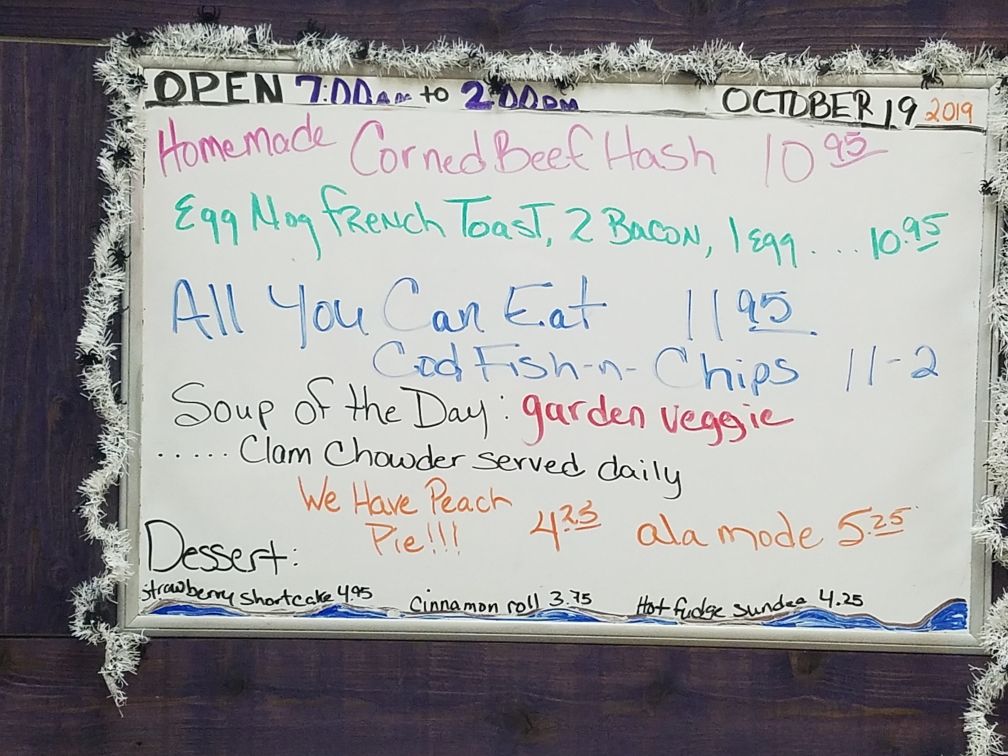 OPEN 7:00am to 2:00pm OCTOBER 19 2019
Homemade Corned Beef Hash 10 95
Egg Nog French Toast, 2 Bacon, 1 egg .... 10.95
All You Can Eat 11 95
Cod Fish-n-Chips 11-2
Soup of the Day: garden veggie
..... Clam Chowder served daily
We Have Peach
Pie!!! 4.25 ala mode 5.25
Dessert:
strawberry shortcake 4.95 cinnamon roll 3.75 Hot fudge sundae 4.25